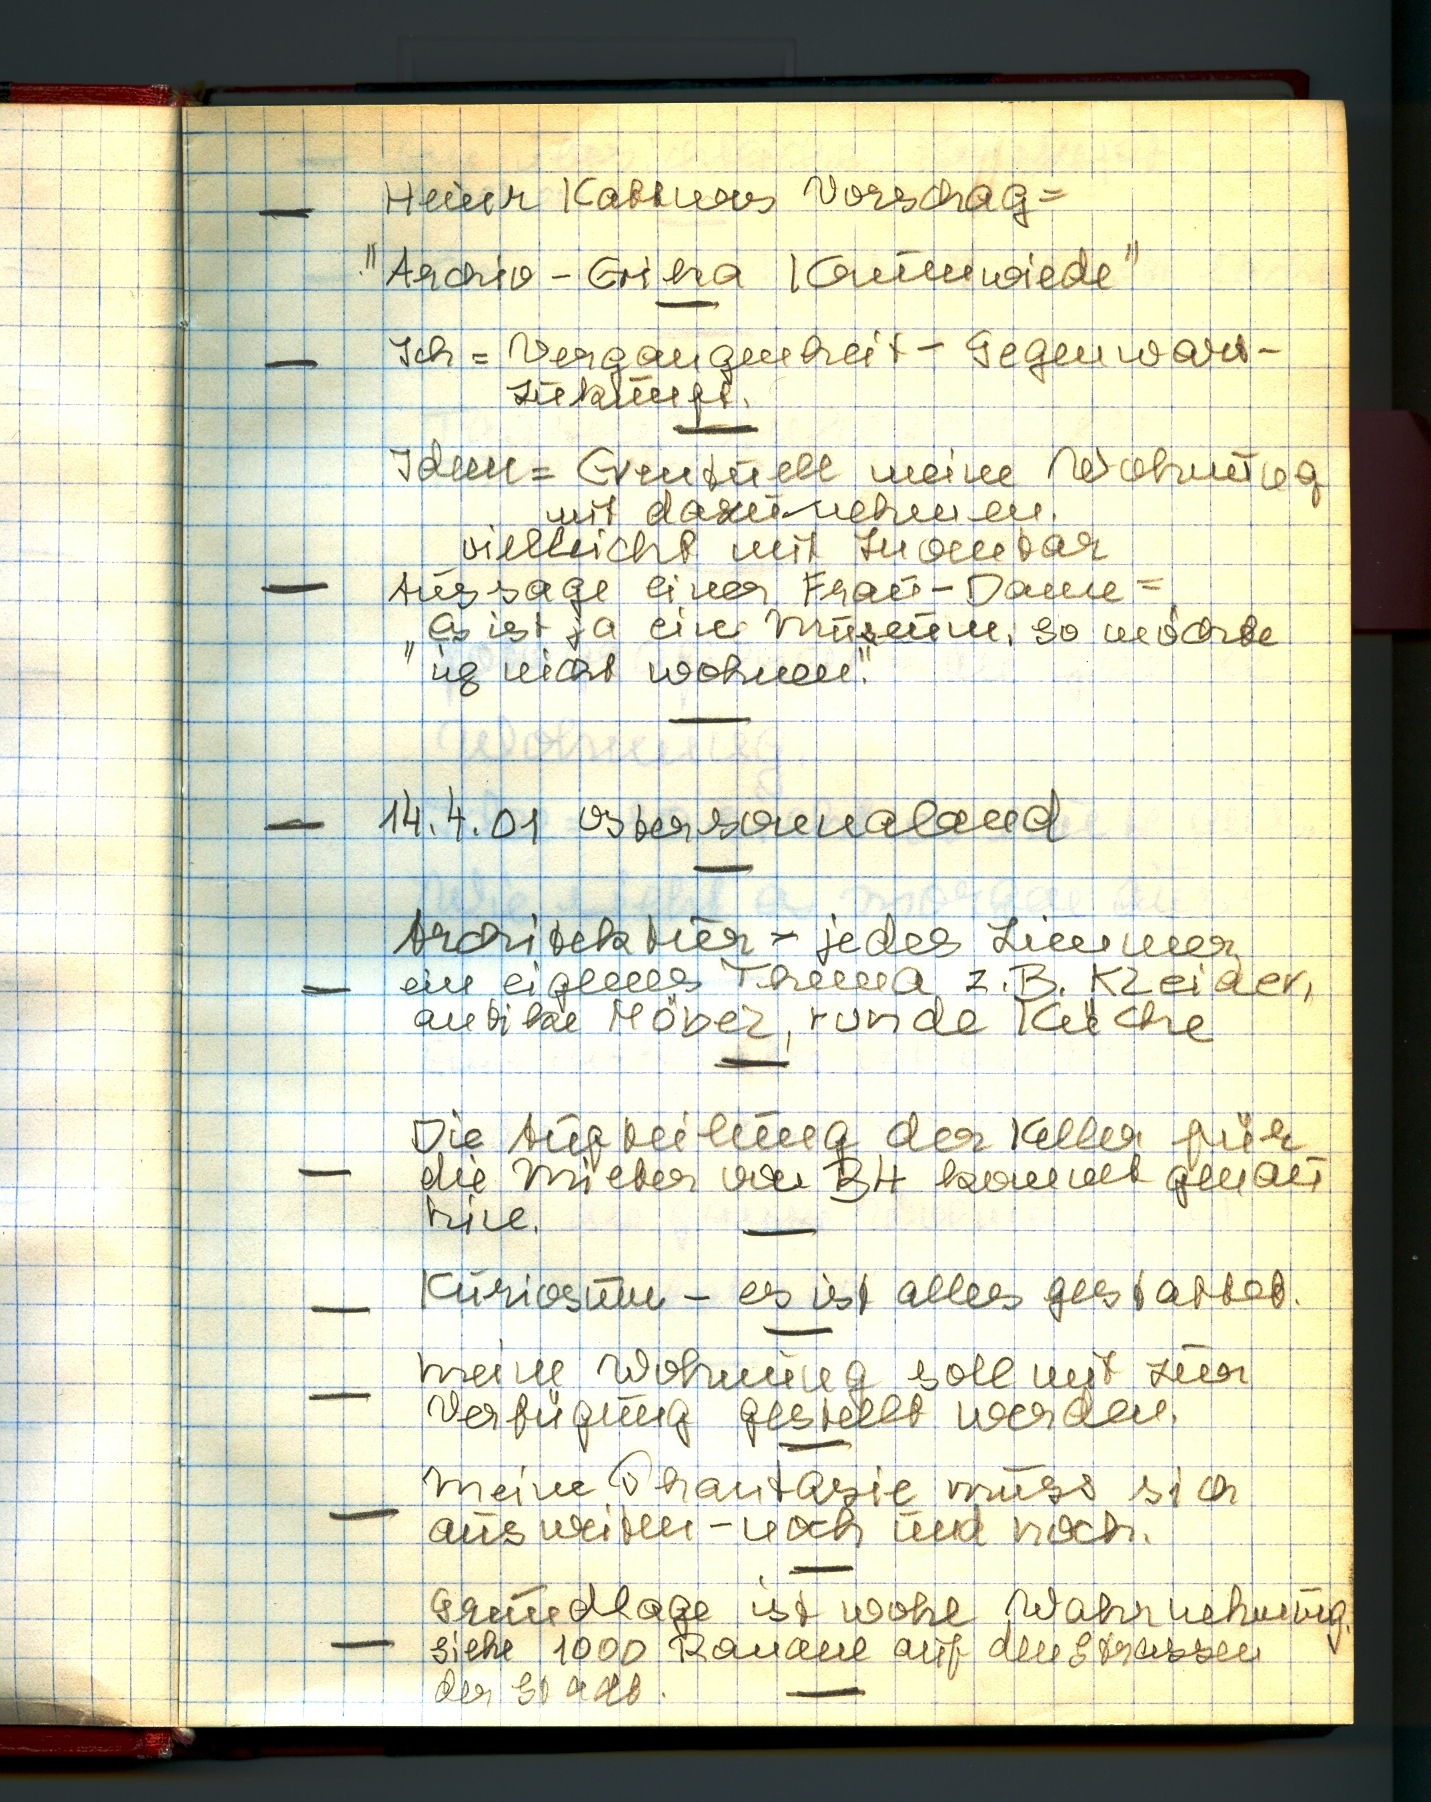 — Heiner Kattners Vorschag =
"Archiv – Erika Kaumwiede"
— Ich = Vergangenheit – Gegenwart –
Zukunft.
Ideen = Eventuell meine Wohnung
mit dazu nehmen.
vielleicht mit Inventar
— Aussage einer Frau – Dame =
es ist ja ein Museum, so möchte
" ig nicht wohnen".
— 14.4.01 Ostersonnabend
Architektur = jedes Zimmer
— ein eigenes Thema z.B. Kleider,
antike Möbel, runde Küche
Die Aufteilung der Keller für
— die Mieter von B4 kommt genau
hin.
— Kuriosum – es ist alles gestattet.
— meine Wohnung soll mit zur
Verfügung gestellt werden.
— Meine Phantasie muss sich
ausweiten – noch und noch.
Grundlage ist wohl Wahrnehmung.
— siehe 1000 Banane auf den Strassen
der Stadt.